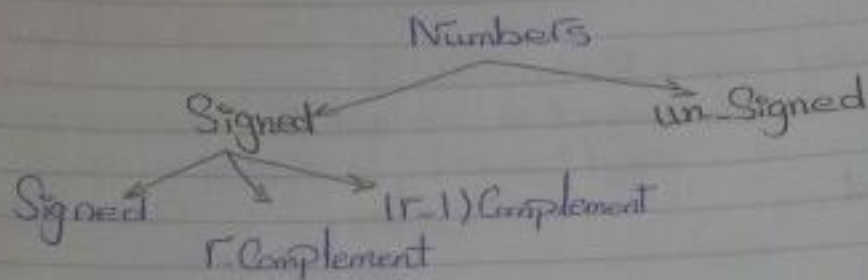 Numbers
Signed un-Signed
Signed r-Complement (r-1) Complement